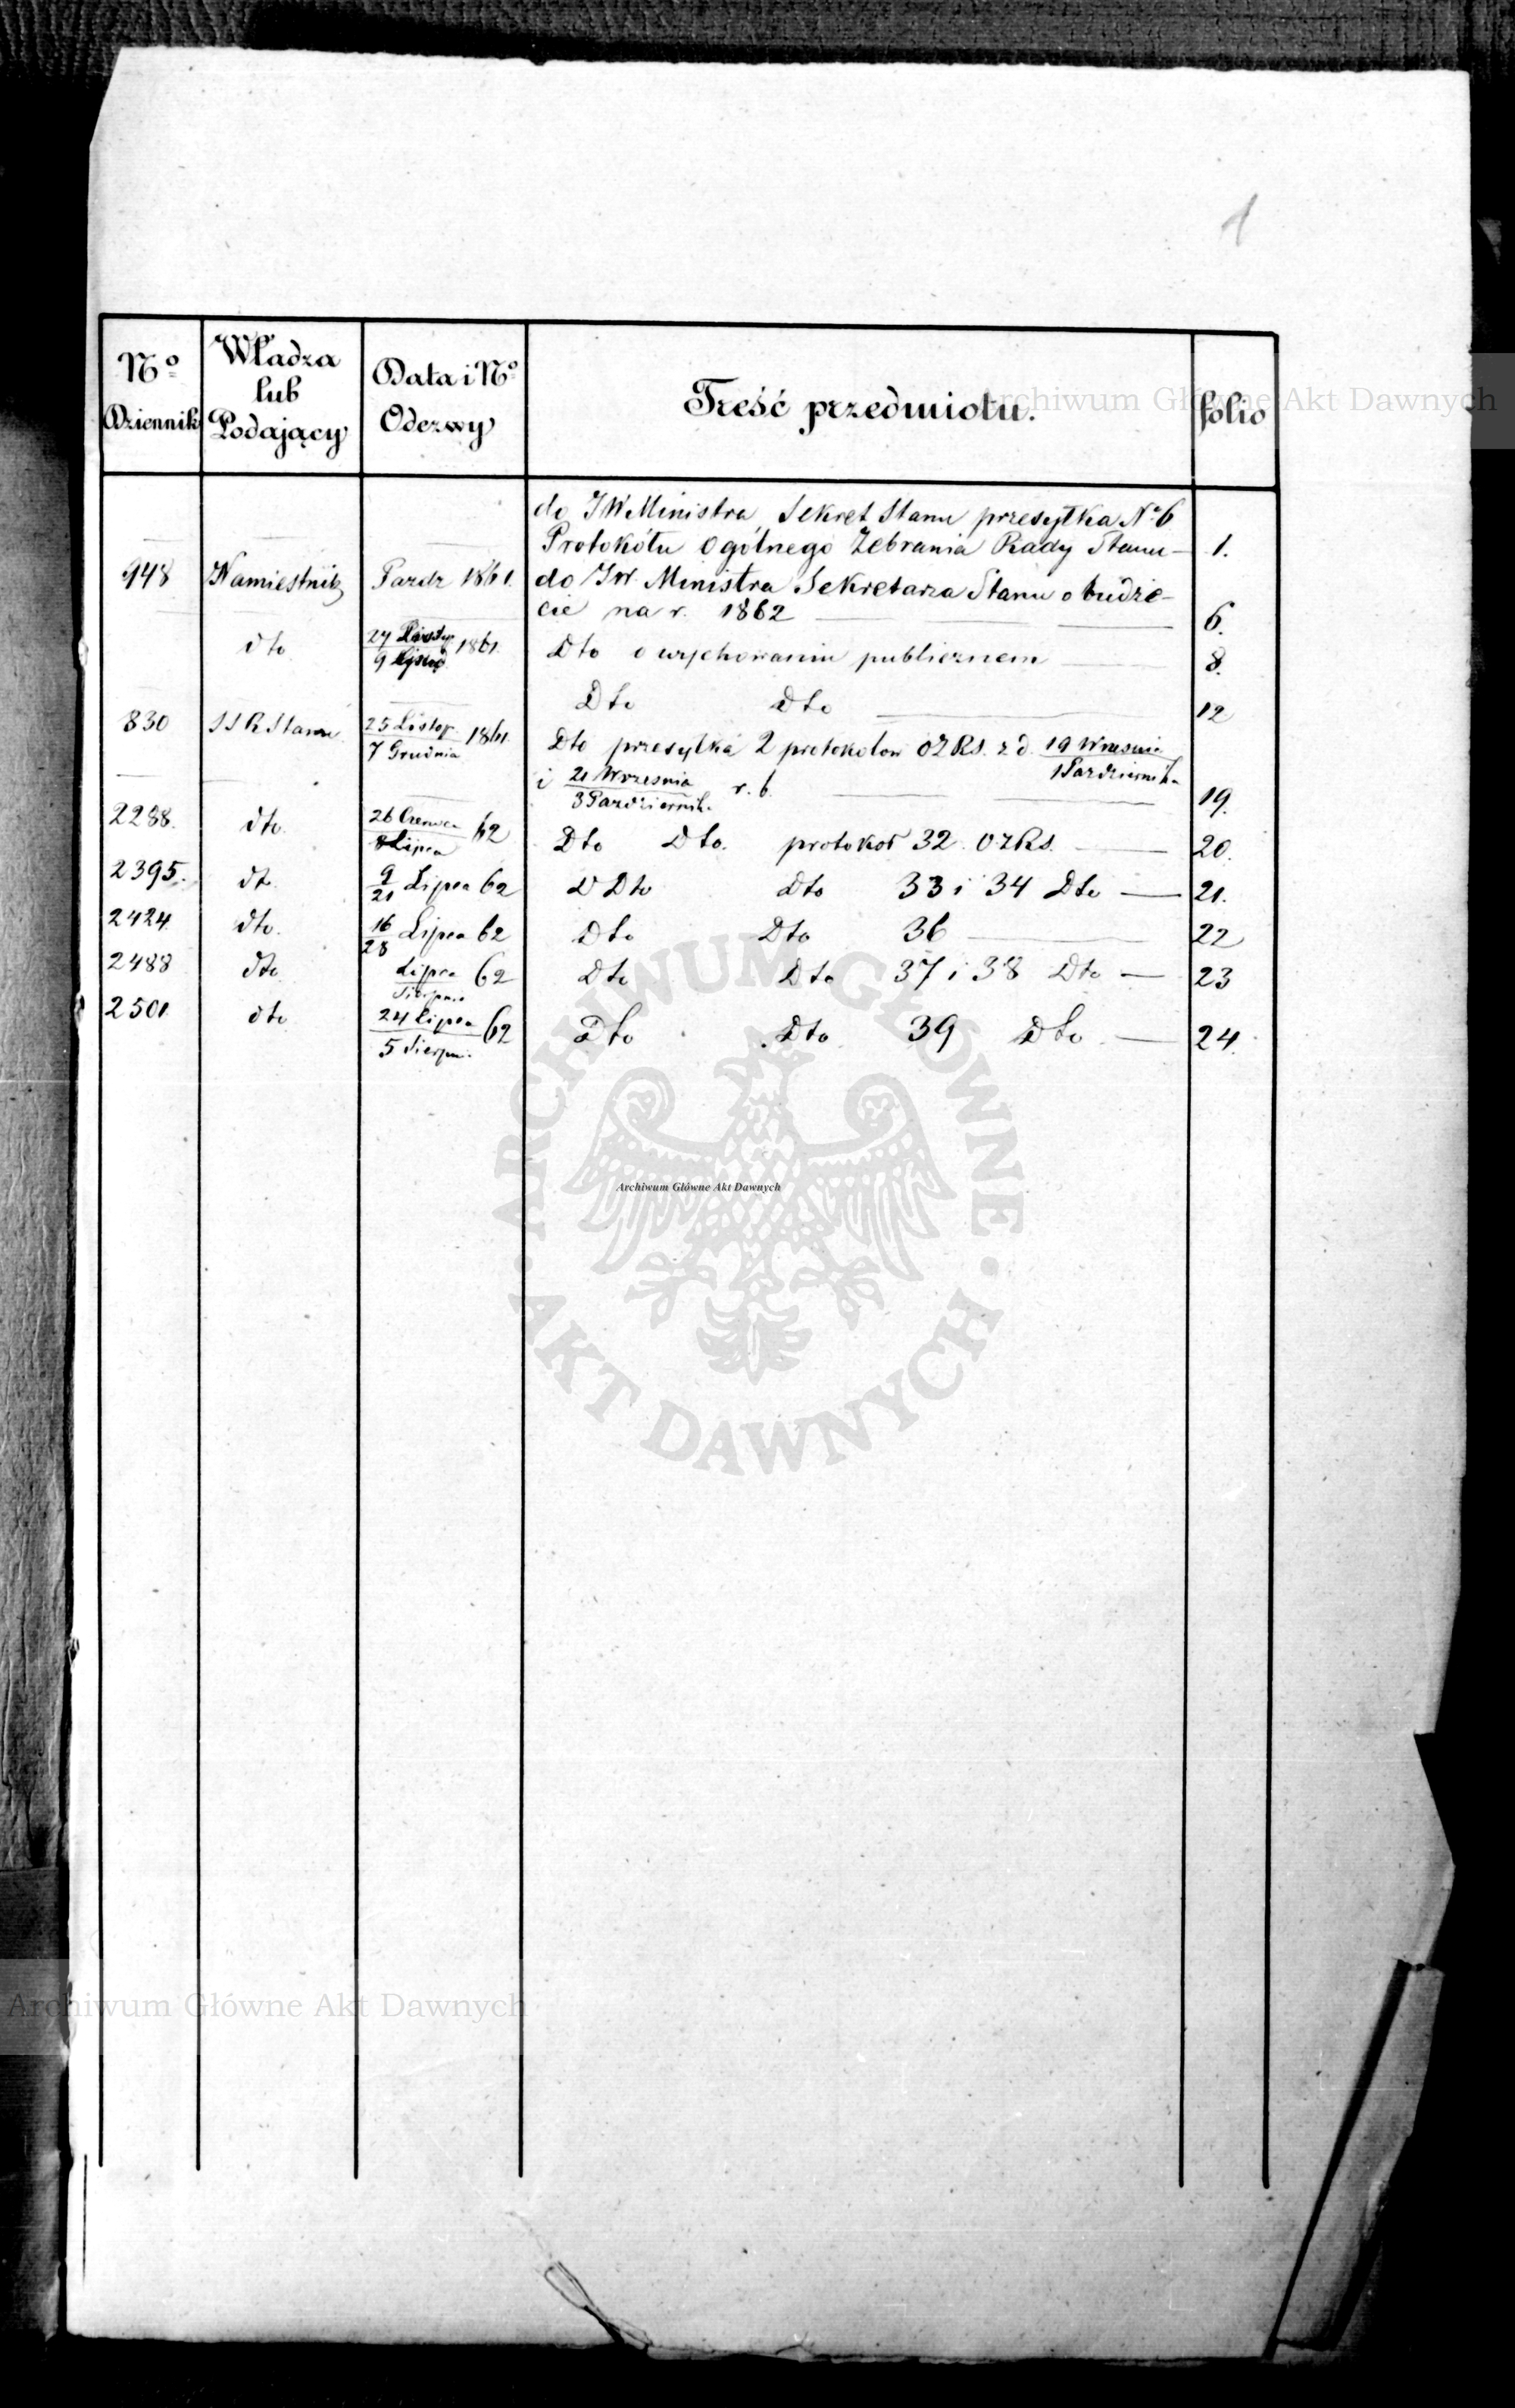 1
Nº Dziennik
Władza lub Podający
Data i Nº Odezwy
Treść przedmiotu.
folio
do JW Ministra Sekret Stanu przesyłka Nº 6
Protokółu Ogólnego Zebrania Rady Stanu — 1.
948 Namiestnik Pazdr 1861. do JW. Ministra Sekretarza Stanu o budże-
cie na r. 1862 — 6.
dto 1861. Dto o wychowaniu publicznem — 8.
Dto Dto — 12
830 SSRStanu 25 Listop. / 7 Grudnia 1861. Dto przesyłka 2 protokołów OZRS. z d. 19 Wrzesnia / 1 Pazdziernik.
i 21 Wrzesnia / 3 Pazdziernik. r. b. — 19.
2288. dto. 26 Czerwca / 8 Lipca 62 Dto Dto. protokoł 32 OZRS. — 20.
2395. dto. 9/21 Lipca 62 Dto Dto 33 i 34 Dto — 21.
2424. dto. 16/28 Lipca 62 Dto Dto 36 — 22
2488 dto. Lipca / Sierpnia 62 Dto Dto 37 i 38 Dto — 23
2501 dto 24 Lipca / 5 Sierpn. 62 Dto Dto 39 Dto — 24.
Archiwum Główne Akt Dawnych
Archiwum Główne Akt Dawnych
ARCHIWUM GŁÓWNE · AKT DAWNYCH ·
Archiwum Główne Akt Dawnych